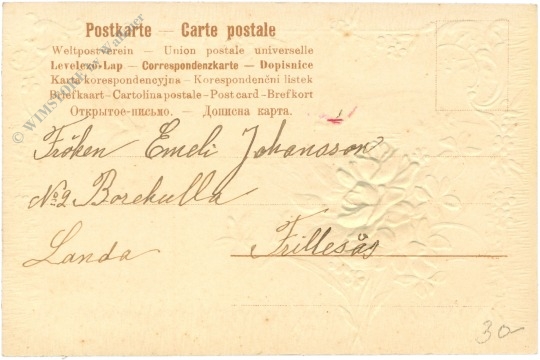 Postkarte — Carte postale
Weltpostverein — Union postale universelle
Levelező-Lap — Correspondenzkarte — Dopisnice
Karta korespondencyjna — Korespondenční lístek
Briefkaart - Cartolina postale - Post card - Brefkort
Открытое-письмо. — Дописна карта.
© WIMSTORE by Wallner
Fröken Emeli Johansson
No 2 Borekulla
Landa Frillesås
30